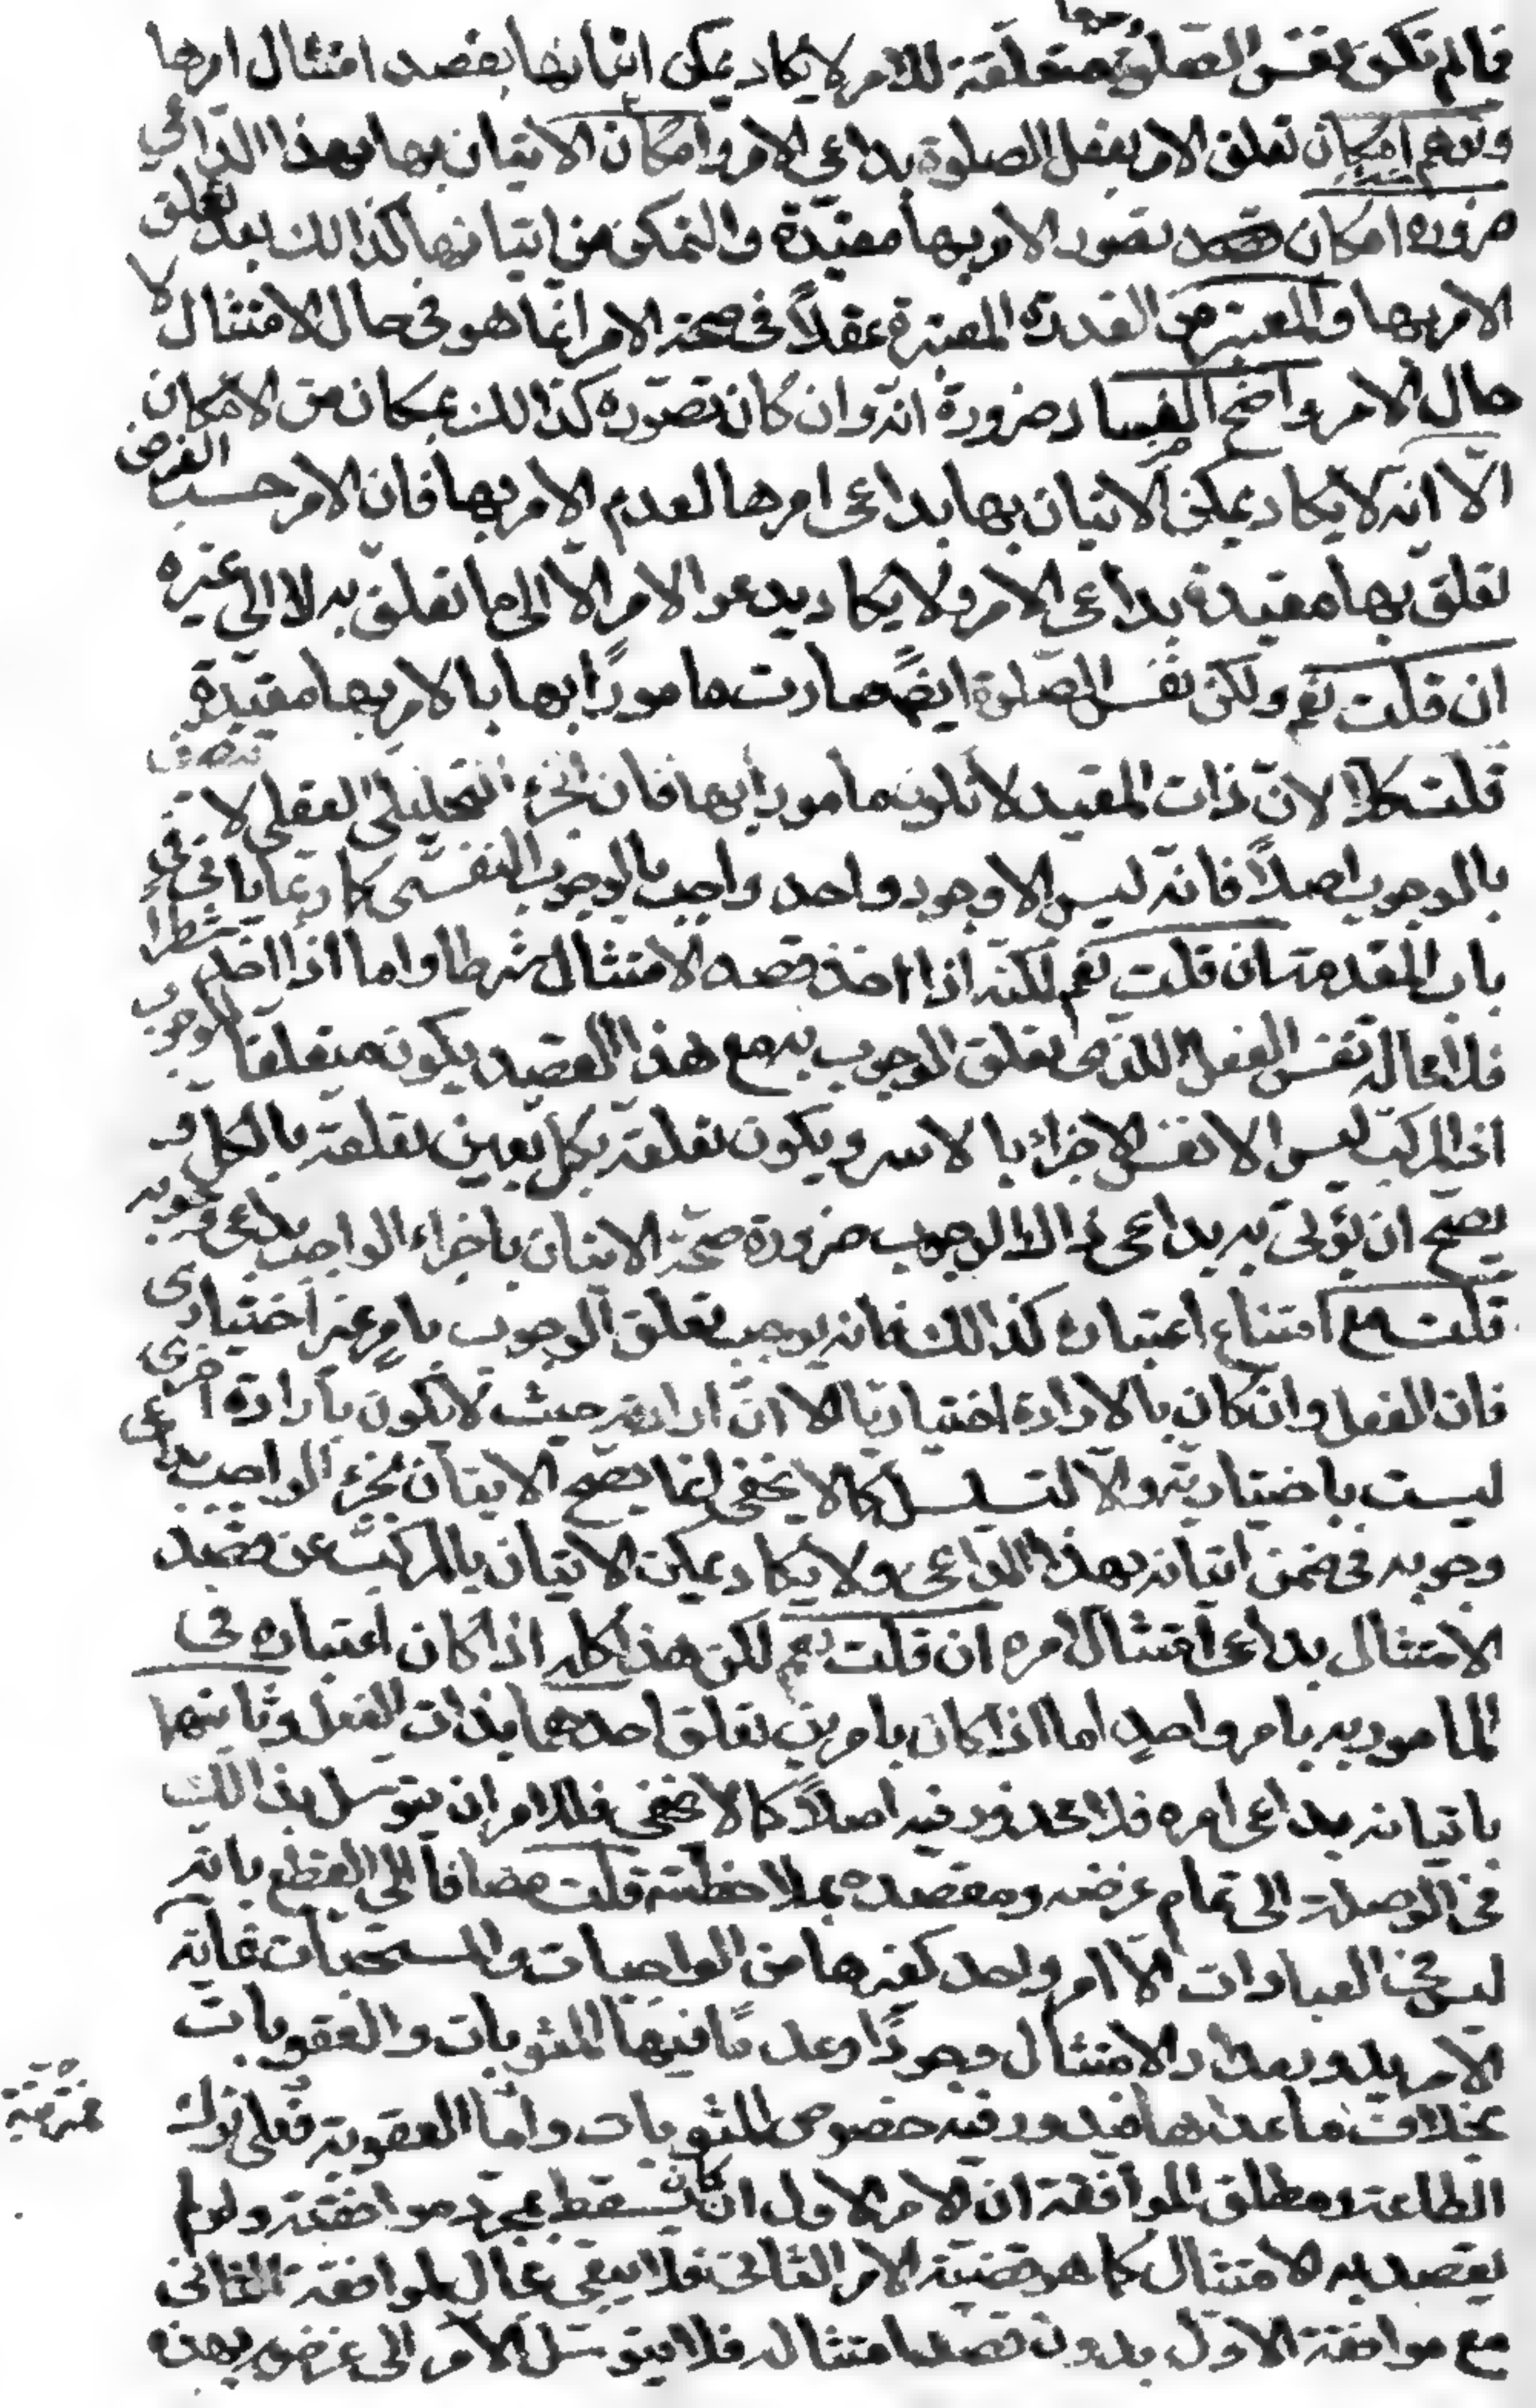 فما لم تكن نفس الصلوة متعلقة للامر لا يكاد يمكن اتيانها بقصد امتثال امرها
وتوهم امكان تعلق الامر بفعل الصلوة بداعى الامر وامكان الاتيان بها بهذا الداعي
ضرورة امكان تصور الامر بها مقيّدة والتمكن من اتيانها كذالك بعد تعلق
الامر بها والمعتبر من القدرة المعتبرة عقلاً فى صحة الامر انما هو فى حال الامتثال لا
حال الامر واضح الفساد ضرورة انّه وان كان تصوّره كذالك بمكان من الامكان
الّا انه لا يكاد يمكن الاتيان بها بداعى امرها لعدم الامر بها فان الامر حسب الفرض
تعلّق بها مقيدة بداعى الامر ولا يكاد يدعو الامر الّا الى ما تعلّق به لا الى غيره
ان قلت نعم ولكن نفس الصلوة ايضً صارت مامورًا بها بالامر بها مقيّدة
قلت كلا لانّ ذات المقيد لا تكون مامورا بها فان الجزء التحليلي العقلي لا تتصف
بالوجوب اصلاً فانّه ليس الا وجود واحد واجب بالوجوب النفسى كما ربّما ياتى فى
باب المقدمة ان قلت نعم لكنّه اذا اخذ قصد الامتثال شرطا واما اذا اخذ شطرا
فلا محالة نفس الفعل الذى تعلق الوجوب به مع هذا القصد يكون متعلقا للوجوب
اذ المركب ليس الا نفس الاجزاء بالاسر ويكون تعلقه بكل بعين تعلقه بالكل و
يصحّ ان يؤتى به بداعى ذالك الوجوب ضرورة صحّة الاتيان باجزاء الواجب بداعى وجوبه
قلت مع امتناع اعتباره كذالك فانه يوجب تعلق الوجوب بامر غير اختيارى
فان الفعل وان كان بالارادة اختياريّا الا انّ ارادته حيث لا تكون بارادة اخرى
ليست باختياريّة والّا لتسلسل كما لا يخفى انما يصح الاتيان بجزء الواجب بداعى
وجوبه فى ضمن اتيانه بهذا الداعى ولا يكاد يمكن الاتيان بالمركّب عن قصد
الامتثال بداعى امتثال امره ان قلت نعم لكن هذا كله اذا كان اعتباره فى
المامور به بامر واحدٍ اما اذا كان بامرين تعلق احدهما بذات الفعل وثانيهما
باتيانه بداعى امره فلا محذور فيه اصلاً كما لا يخفى فللامر ان يتوسل بذالك
فى الوصلة الى تمام غرضه ومقصده بملاحظته قلت مضافاً الى القطع بانّه
ليس فى العبادات الّا امر واحد كغيرها من الواجبات والمستحبّات غايته
الامر يدور مدار الامتثال وجودًا وعدمًا فيها المثوبات والعقوبات
بخلاف ما عداها فيدور فيه خصوص المثوبات وامّا العقوبة فعلى ترك
الطاعة ومطلق الموافقة ان الامر الاول ان كان يسقط بمجرد موافقته ولو لم
يقصد به الامتثال كما هو قضيّة الامر الثانى فلا يبقى مجال لموافقة الثانى
مع موافقة الاول بدون قصد امتثاله فلا يتوسّل الآمر الى غرضه بهذه